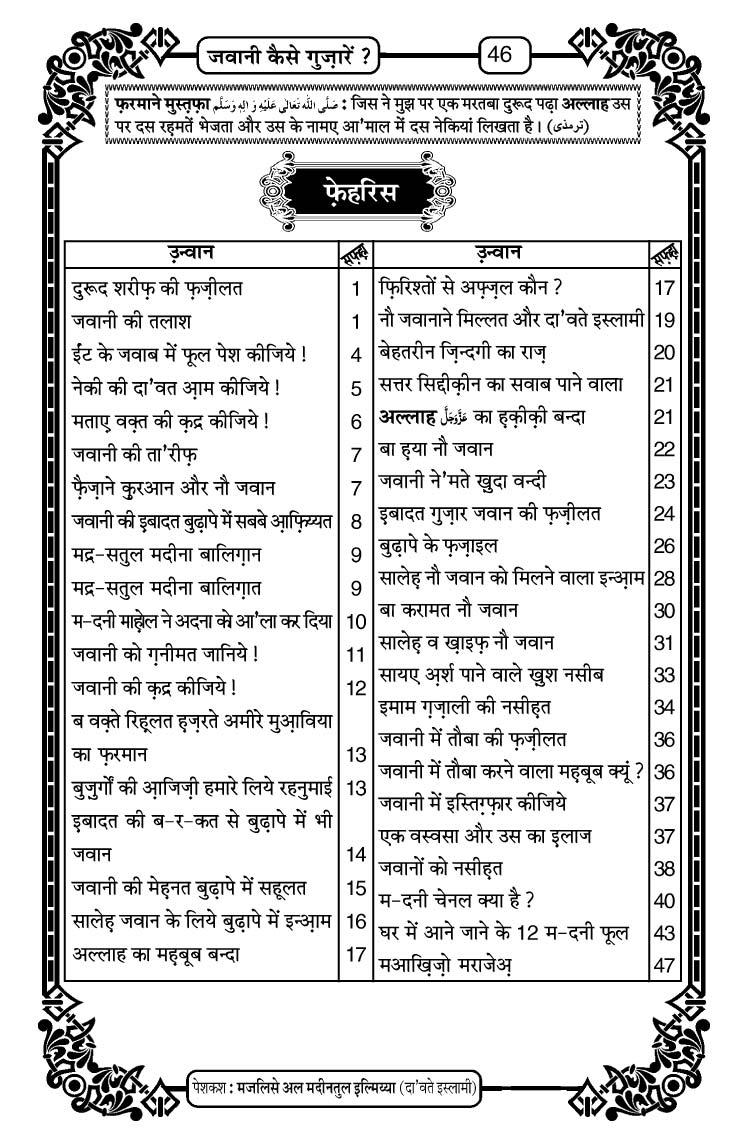 जवानी कैसे गुज़ारें ?
46
फ़रमाने मुस्तफ़ा صَلَّى اللّٰهُ تَعَالٰى عَلَيْهِ وَاٰلِهٖ وَسَلَّم : जिस ने मुझ पर एक मरतबा दुरूद पढ़ा अल्लाह उस
पर दस रह़मतें भेजता और उस के नामए आ'माल में दस नेकियां लिखता है। (ترمذی)
फ़ेहरिस
उ़न्वान सफ़्ह़ा
दुरूद शरीफ़ की फ़ज़ीलत 1
जवानी की तलाश 1
ईंट के जवाब में फूल पेश कीजिये ! 4
नेकी की दा'वत आ़म कीजिये ! 5
मताए वक़्त की क़द्र कीजिये ! 6
जवानी की ता'रीफ़ 7
फ़ैज़ाने क़ुरआन और नौ जवान 7
जवानी की इ़बादत बुढ़ापे में सबबे आ़फ़िय्यत 8
मद्र-सतुल मदीना बालिग़ान 9
मद्र-सतुल मदीना बालिग़ात 9
म-दनी माह़ोल ने अदना को आ'ला कर दिया 10
जवानी को ग़नीमत जानिये ! 11
जवानी की क़द्र कीजिये ! 12
ब वक़्ते रिह़्लत ह़ज़रते अमीरे मुआ़विया
का फ़रमान 13
बुज़ुर्गों की आ़जिज़ी हमारे लिये रहनुमाई 13
इ़बादत की ब-र-कत से बुढ़ापे में भी
जवान 14
जवानी की मेहनत बुढ़ापे में सहूलत 15
सालेह़ जवान के लिये बुढ़ापे में इन्आ़म 16
अल्लाह का मह़बूब बन्दा 17
उ़न्वान सफ़्ह़ा
फ़िरिश्तों से अफ़्ज़ल कौन ? 17
नौ जवानाने मिल्लत और दा'वते इस्लामी 19
बेहतरीन ज़िन्दगी का राज़ 20
सत्तर सिद्दीक़ीन का सवाब पाने वाला 21
अल्लाह عَزَّوَجَلَّ का ह़क़ीक़ी बन्दा 21
बा ह़या नौ जवान 22
जवानी ने'मते ख़ुदा वन्दी 23
इ़बादत गुज़ार जवान की फ़ज़ीलत 24
बुढ़ापे के फ़ज़ाइल 26
सालेह़ नौ जवान को मिलने वाला इन्आ़म 28
बा करामत नौ जवान 30
सालेह़ व ख़ाइफ़ नौ जवान 31
सायए अ़र्श पाने वाले ख़ुश नसीब 33
इमाम ग़ज़ाली की नसीह़त 34
जवानी में तौबा की फ़ज़ीलत 36
जवानी में तौबा करने वाला मह़बूब क्यूं ? 36
जवानी में इस्तिग़्फ़ार कीजिये 37
एक वस्वसा और उस का इ़लाज 37
जवानों को नसीह़त 38
म-दनी चेनल क्या है ? 40
घर में आने जाने के 12 म-दनी फूल 43
मआख़िज़ो मराजेअ़ 47
पेशकश : मजलिसे अल मदीनतुल इ़ल्मिय्या (दा'वते इस्लामी)